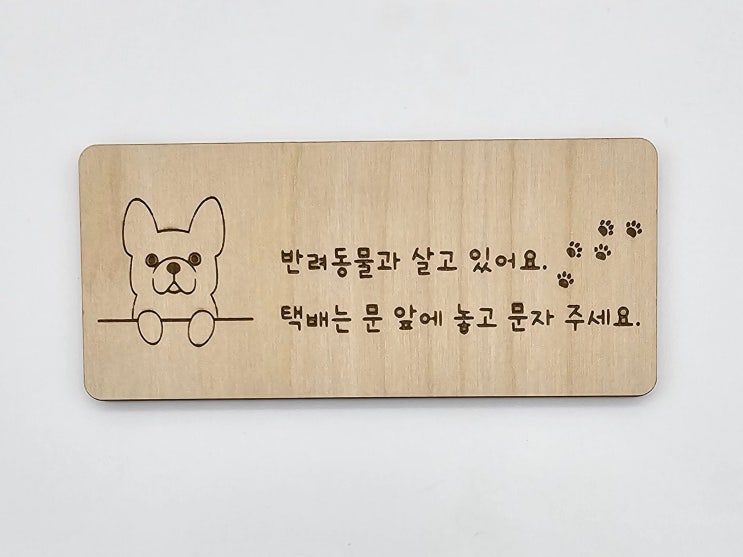 반려동물과 살고 있어요.
택배는 문 앞에 놓고 문자 주세요.